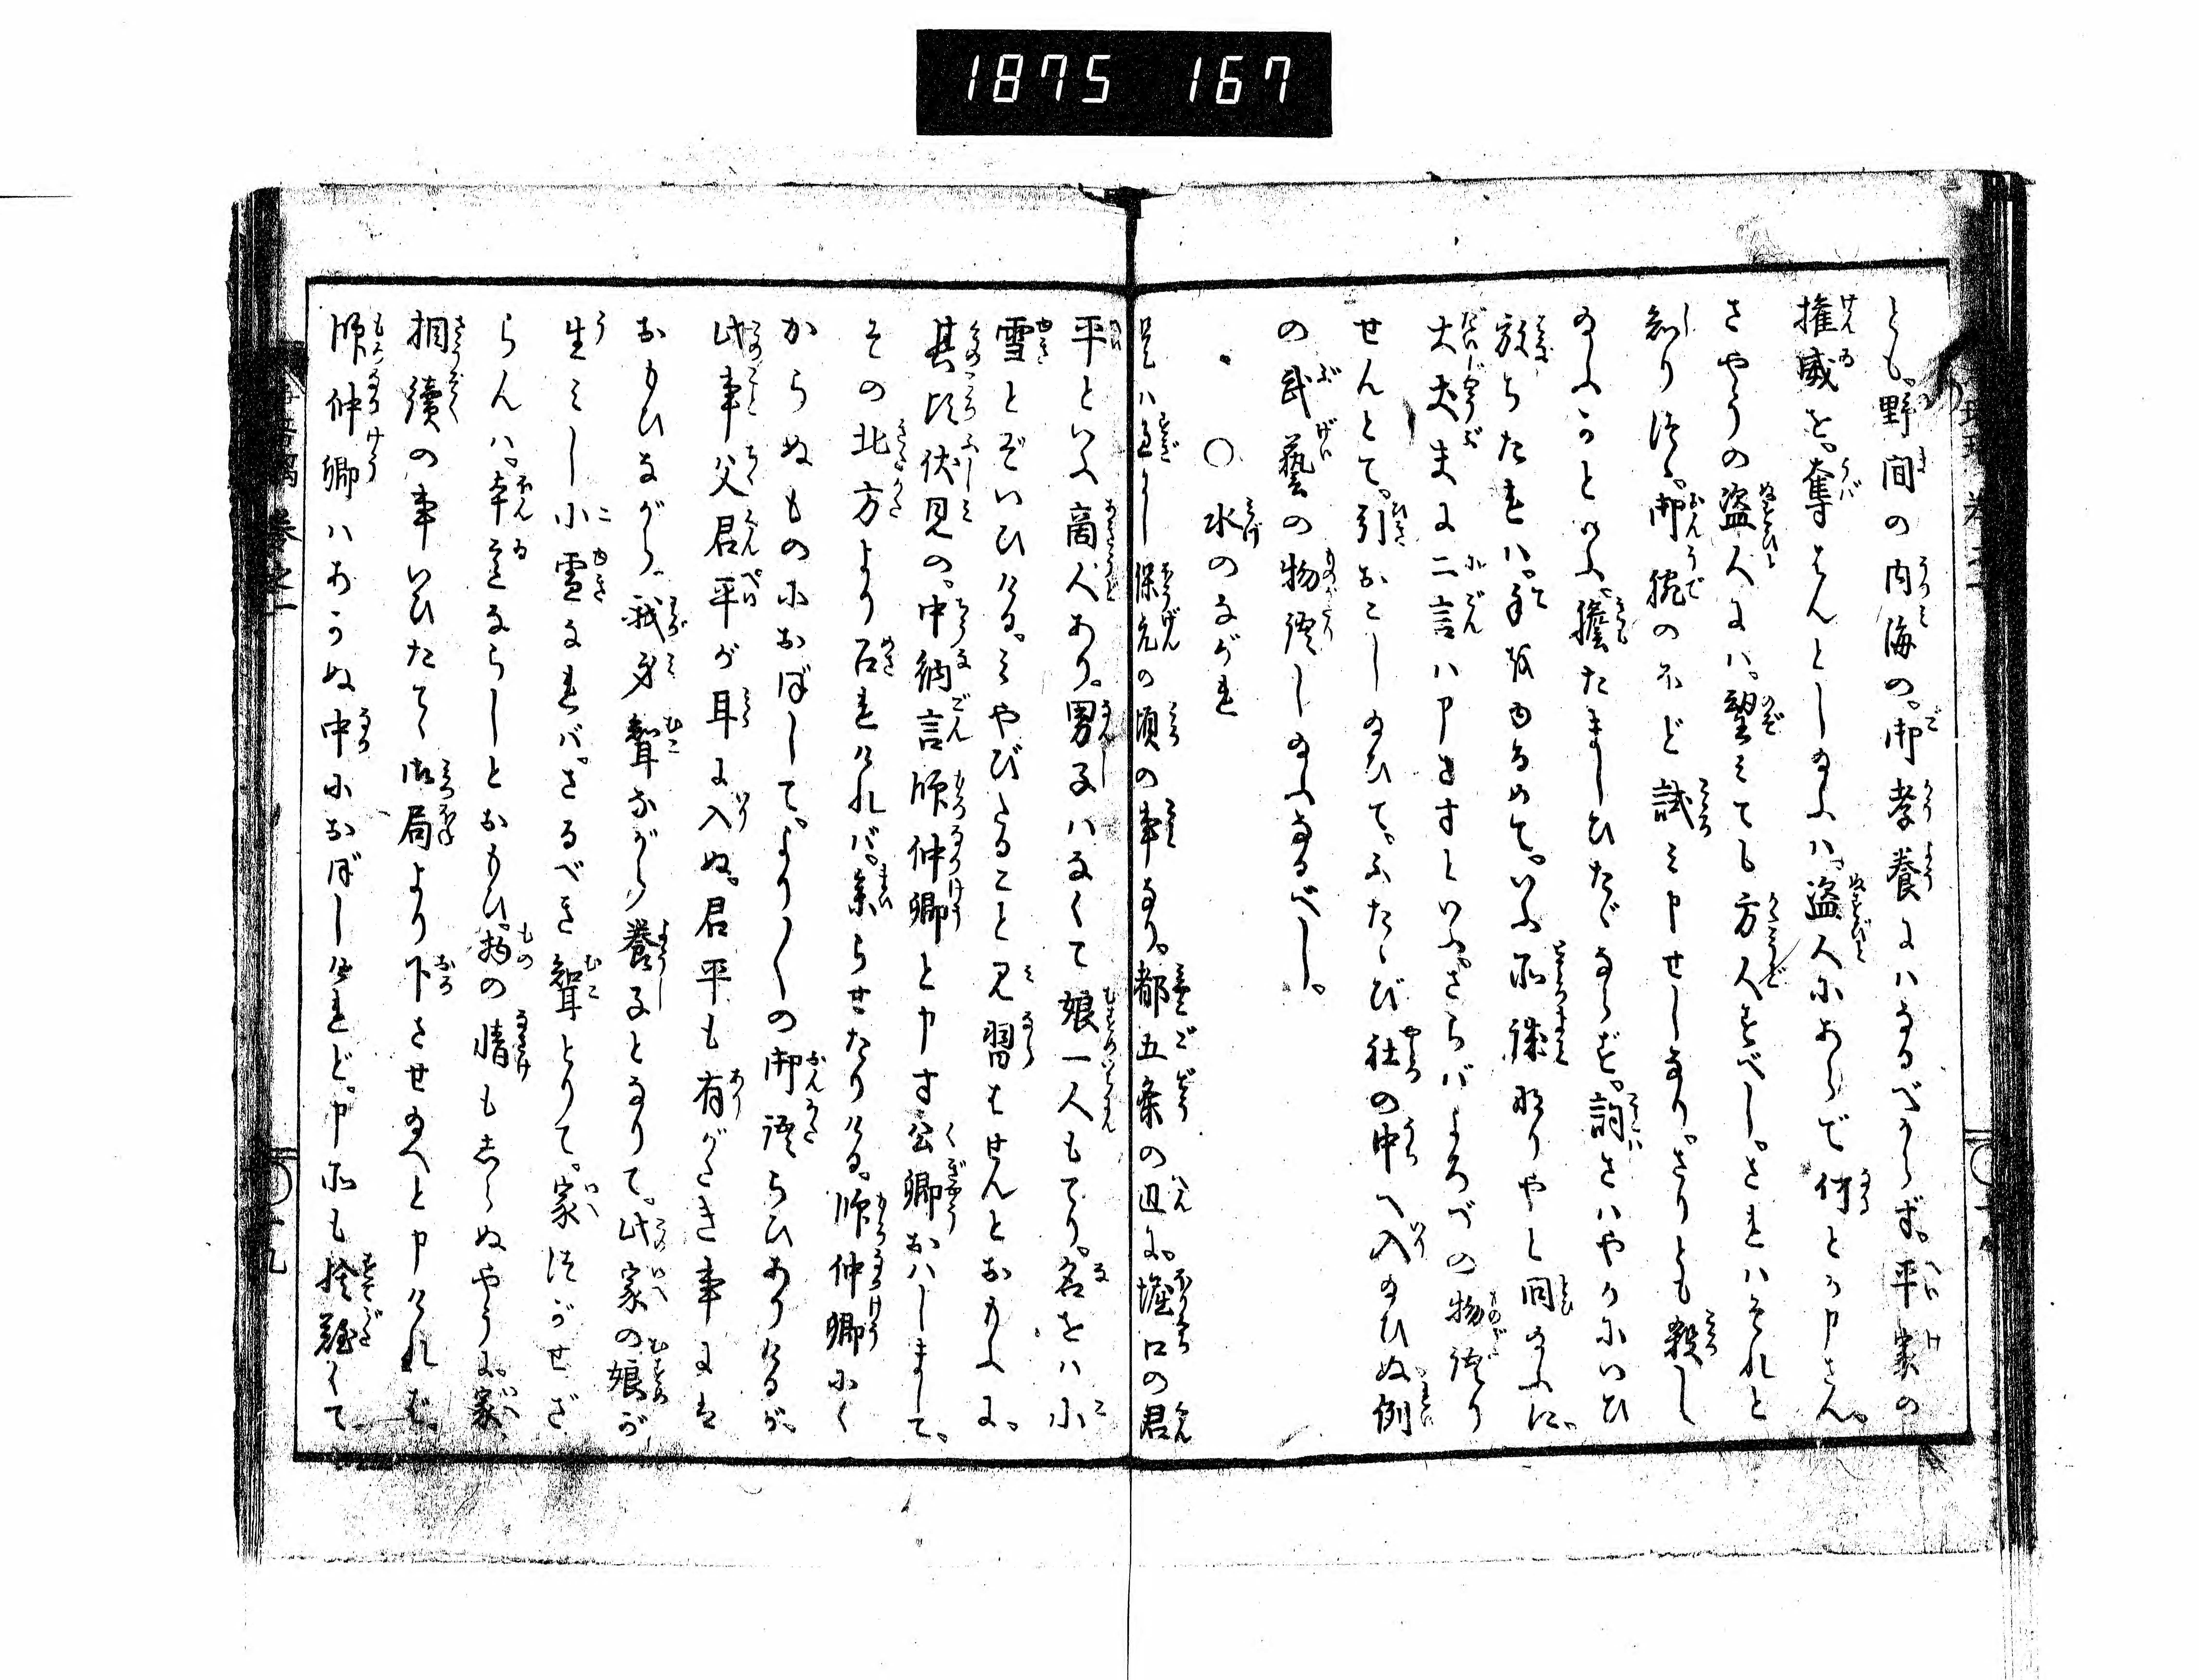 1875 167
とも。野間の内海の。御孝養にハなるべからず。平家の
権威を。奪はんとし給ふハ。盗人にあらで何とか申さん。
さやうの盗人にハ。望みても方人すべし。されハそれと
知り従ふ。御腕のほど試ミ申せしなり。さりとも殺し
給ふかといふ。擔たましひたゞならず。詞さハやかにいひ
放ちたれハ。手紙ゆるめて。いふ所誠なりやと問給ふに。
大丈夫に二言ハ申さずといふ。さらバよろづの物語り
せんとて。引おこし給ひて。ふたゝび社の中へ入給ひぬ例
の武藝の物語し給ふなるべし。
○水のながれ
是ハ過にし保元の頃の事なり。都五条の辺に。堀口の君
平といふ商人あり。男子ハなくて娘一人もてり。名をハ小
雪とぞいひける。みやびたること見習はせんとおもふに。
其比伏見の。中納言師仲卿と申す公卿おハしまして。
その北方より召されけれバ。参らせたりける。師仲卿にく
からぬものにおぼして。より〳〵の御語らひありけるが。
此事父君平が耳に入ぬ。君平も有がたき事には
おもひながら。我身聟ながら養子となりて。此家の娘が
生ミし小雪なれバ。さるべき聟とりて。家つがせざ
らんハ。本意ならじとおもひ。物の情もしらぬやうに。家
相續の事いひたてゝ御局より下させ給へと申けれバ。
師仲卿ハあかぬ中におぼしけれど。申所も捨難くて